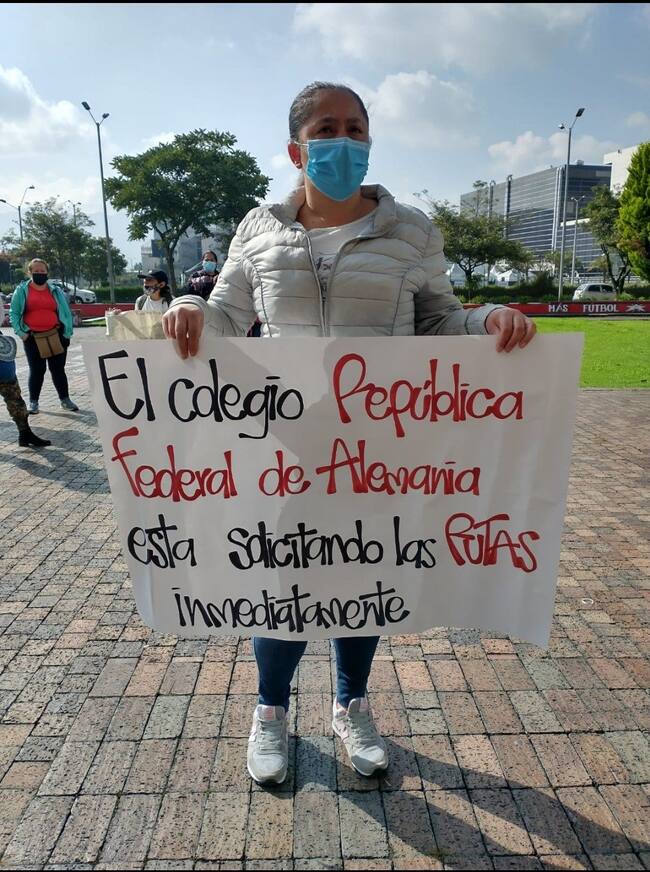 MÁS FÚTBOL
El colegio República
Federal de Alemania
esta solicitando las RUTAS
inmediatamente